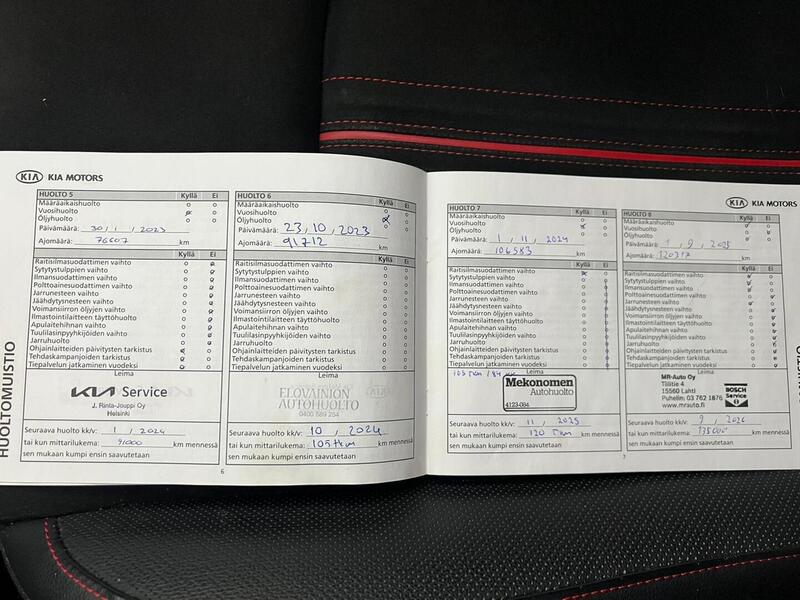 KIA KIA MOTORS
HUOLTOMUISTIO
HUOLTO 5 Kyllä Ei
Määräaikaishuolto
Vuosihuolto
Öljyhuolto
Päivämäärä: 30 / 1 / 2023
Ajomäärä: 76607 km
Kyllä Ei
Raitisilmasuodattimen vaihto
Sytytystulppien vaihto
Ilmansuodattimen vaihto
Polttoainesuodattimen vaihto
Jarrunesteen vaihto
Jäähdytysnesteen vaihto
Voimansiirron öljyjen vaihto
Ilmastointilaitteen täyttöhuolto
Apulaitehihnan vaihto
Tuulilasinpyyhkijöiden vaihto
Jarruhuolto
Ohjainlaitteiden päivitysten tarkistus
Tehdaskampanjoiden tarkistus
Tiepalvelun jatkaminen vuodeksi
Leima
KIA Service
J. Rinta-Jouppi Oy
Helsinki
Seuraava huolto kk/v: 1 / 2024
tai kun mittarilukema: 91000 km mennessä
sen mukaan kumpi ensin saavutetaan
HUOLTO 6 Kyllä Ei
Määräaikaishuolto
Vuosihuolto
Öljyhuolto
Päivämäärä: 23, 10, 2023
Ajomäärä: 91712 km
Kyllä Ei
Raitisilmasuodattimen vaihto
Sytytystulppien vaihto
Ilmansuodattimen vaihto
Polttoainesuodattimen vaihto
Jarrunesteen vaihto
Jäähdytysnesteen vaihto
Voimansiirron öljyjen vaihto
Ilmastointilaitteen täyttöhuolto
Apulaitehihnan vaihto
Tuulilasinpyyhkijöiden vaihto
Jarruhuolto
Ohjainlaitteiden päivitysten tarkistus
Tehdaskampanjoiden tarkistus
Tiepalvelun jatkaminen vuodeksi
Leima
ELOVAINION
AUTOHUOLTO
0400 589 284
Seuraava huolto kk/v: 10 / 2024
tai kun mittarilukema: 105 tkm km mennessä
sen mukaan kumpi ensin saavutetaan
6
KIA KIA MOTORS
HUOLTO 7 Kyllä Ei
Määräaikaishuolto
Vuosihuolto
Öljyhuolto
Päivämäärä: 1 / 11 / 2024
Ajomäärä: 106583 km
Kyllä Ei
Raitisilmasuodattimen vaihto
Sytytystulppien vaihto
Ilmansuodattimen vaihto
Polttoainesuodattimen vaihto
Jarrunesteen vaihto
Jäähdytysnesteen vaihto
Voimansiirron öljyjen vaihto
Ilmastointilaitteen täyttöhuolto
Apulaitehihnan vaihto
Tuulilasinpyyhkijöiden vaihto
Jarruhuolto
Ohjainlaitteiden päivitysten tarkistus
Tehdaskampanjoiden tarkistus
Tiepalvelun jatkaminen vuodeksi
Leima
Mekonomen
Autohuolto
4123-084
Seuraava huolto kk/v: 11 / 2025
tai kun mittarilukema: 120 tkm km mennessä
sen mukaan kumpi ensin saavutetaan
HUOLTO 8 Kyllä Ei
Määräaikaishuolto
Vuosihuolto
Öljyhuolto
Päivämäärä: 1 / 9 / 2025
Ajomäärä: 120317 km
Kyllä Ei
Raitisilmasuodattimen vaihto
Sytytystulppien vaihto
Ilmansuodattimen vaihto
Polttoainesuodattimen vaihto
Jarrunesteen vaihto
Jäähdytysnesteen vaihto
Voimansiirron öljyjen vaihto
Ilmastointilaitteen täyttöhuolto
Apulaitehihnan vaihto
Tuulilasinpyyhkijöiden vaihto
Jarruhuolto
Ohjainlaitteiden päivitysten tarkistus
Tehdaskampanjoiden tarkistus
Tiepalvelun jatkaminen vuodeksi
Leima
MR-Auto Oy
Tilitie 4
15560 Lahti
Puhelin 03 762 1876
www.mrauto.fi
BOSCH
Service
Seuraava huolto kk/v: 9 / 2026
tai kun mittarilukema: 135000 km mennessä
sen mukaan kumpi ensin saavutetaan
7